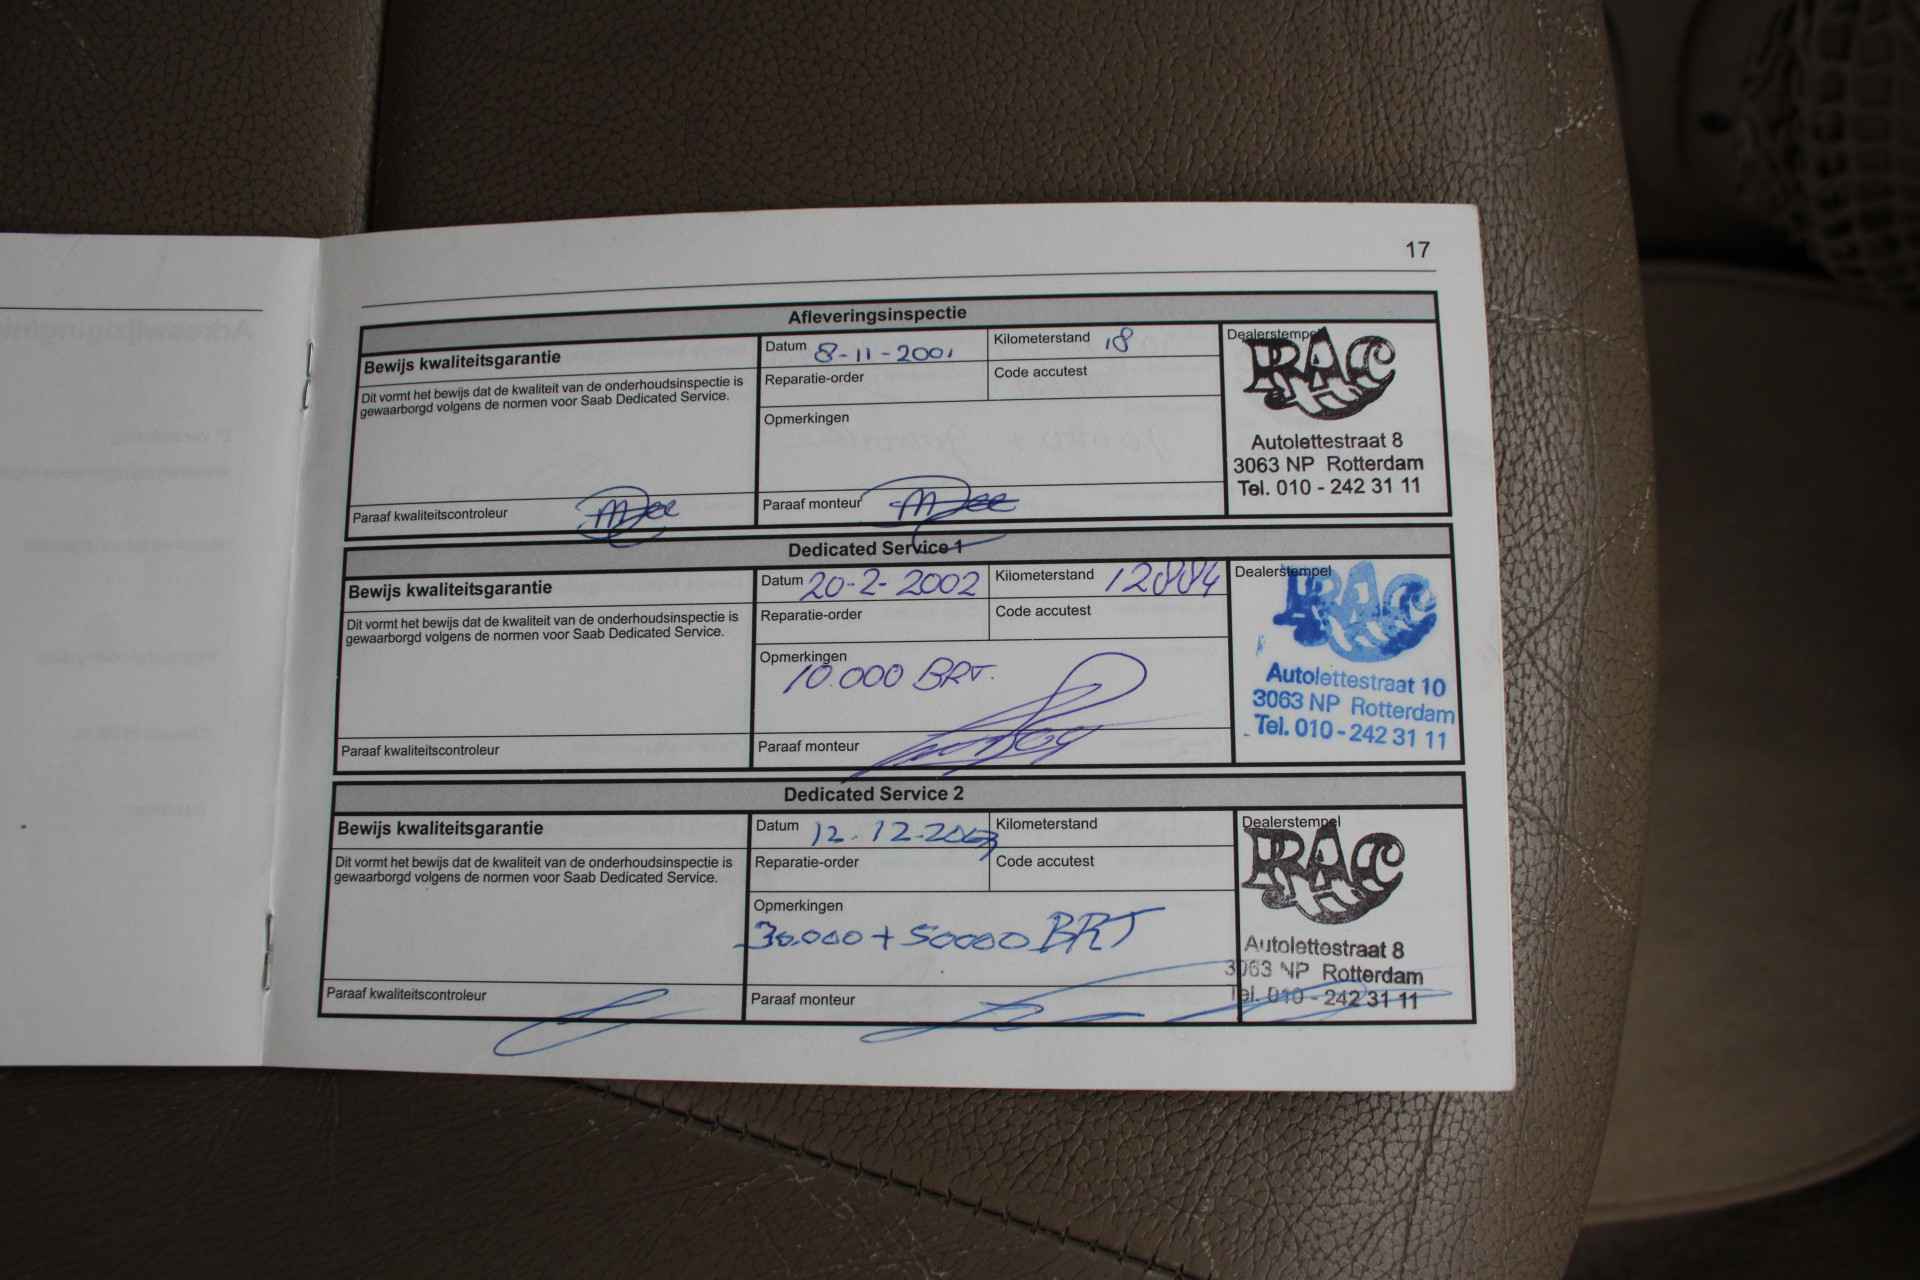 17
Afleveringsinspectie
Bewijs kwaliteitsgarantie
Dit vormt het bewijs dat de kwaliteit van de onderhoudsinspectie is
gewaarborgd volgens de normen voor Saab Dedicated Service.
Paraaf kwaliteitscontroleur
Datum 8-11-2001
Kilometerstand 18
Reparatie-order
Code accutest
Opmerkingen
Paraaf monteur
Dealerstempel
RAC
Autolettestraat 8
3063 NP Rotterdam
Tel. 010 - 242 31 11
Dedicated Service 1
Bewijs kwaliteitsgarantie
Dit vormt het bewijs dat de kwaliteit van de onderhoudsinspectie is
gewaarborgd volgens de normen voor Saab Dedicated Service.
Paraaf kwaliteitscontroleur
Datum 20-2-2002
Kilometerstand 12884
Reparatie-order
Code accutest
Opmerkingen
10.000 BRT.
Paraaf monteur
Dealerstempel
RAC
Autolettestraat 10
3063 NP Rotterdam
Tel. 010 - 242 31 11
Dedicated Service 2
Bewijs kwaliteitsgarantie
Dit vormt het bewijs dat de kwaliteit van de onderhoudsinspectie is
gewaarborgd volgens de normen voor Saab Dedicated Service.
Paraaf kwaliteitscontroleur
Datum 12-12-2003
Kilometerstand
Reparatie-order
Code accutest
Opmerkingen
30.000 + 50000 BRT
Paraaf monteur
Dealerstempel
RAC
Autolettestraat 8
3063 NP Rotterdam
Tel. 010 - 242 31 11